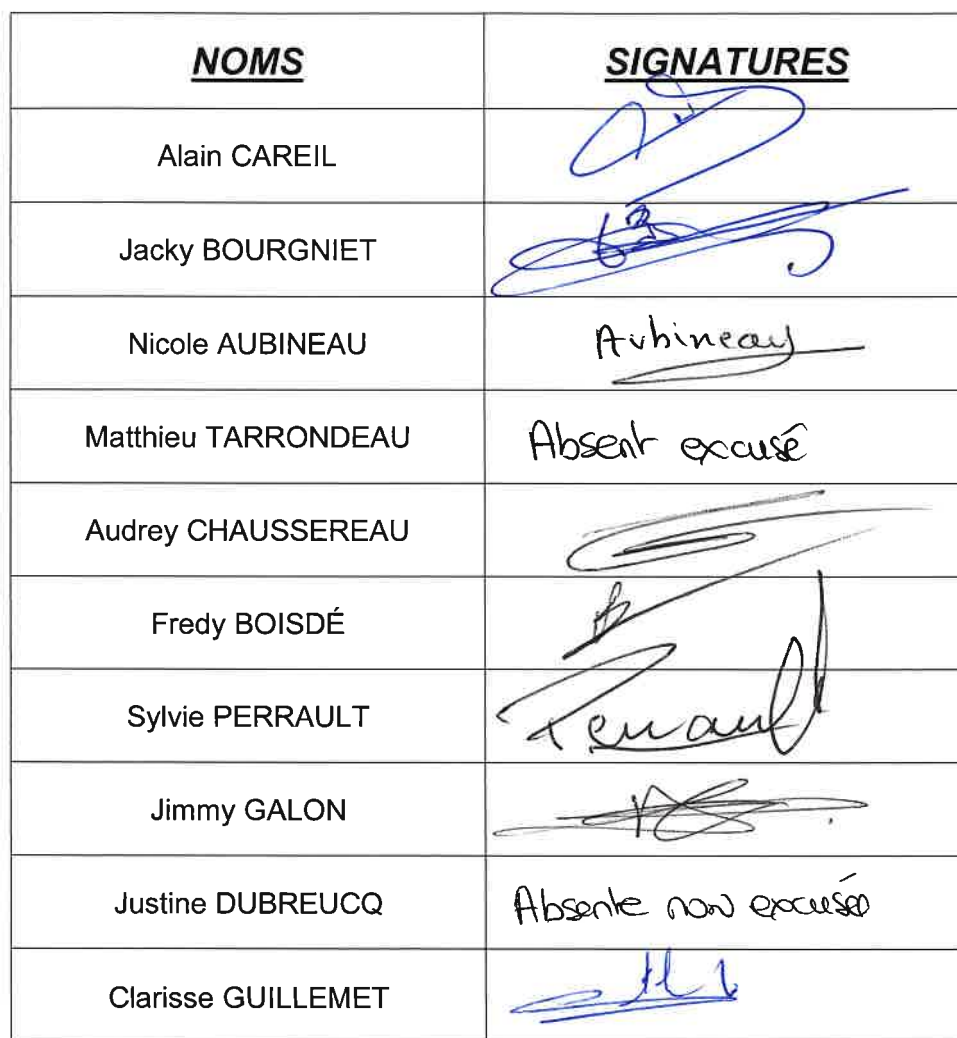 NOMS SIGNATURES
Alain CAREIL
Jacky BOURGNIET
Nicole AUBINEAU Aubineau
Matthieu TARRONDEAU Absent excusé
Audrey CHAUSSEREAU
Fredy BOISDÉ
Sylvie PERRAULT Perrault
Jimmy GALON
Justine DUBREUCQ Absente non excusée
Clarisse GUILLEMET